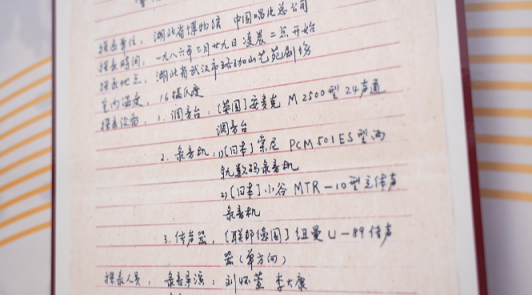 采录单位：湖北省博物馆 中国唱片总公司
采录时间：一九八六年二月廿九日凌晨二点开始
采录地点：湖北省武汉市珞珈山艺苑剧场
室内温度：16摄氏度
采录设备：1. 调音台：〔英国〕安麦克 M 2500型 24声道
调音台
2. 录音机：1)〔日本〕索尼 PCM 501ES型 两
轨数码录音机
2)〔日本〕小谷 MTR-10型立体声
录音机
3. 传声器：〔联邦德国〕纽曼 U-89 传声
器（单方向）
采录人员：录音导演：刘怀萱 李大康